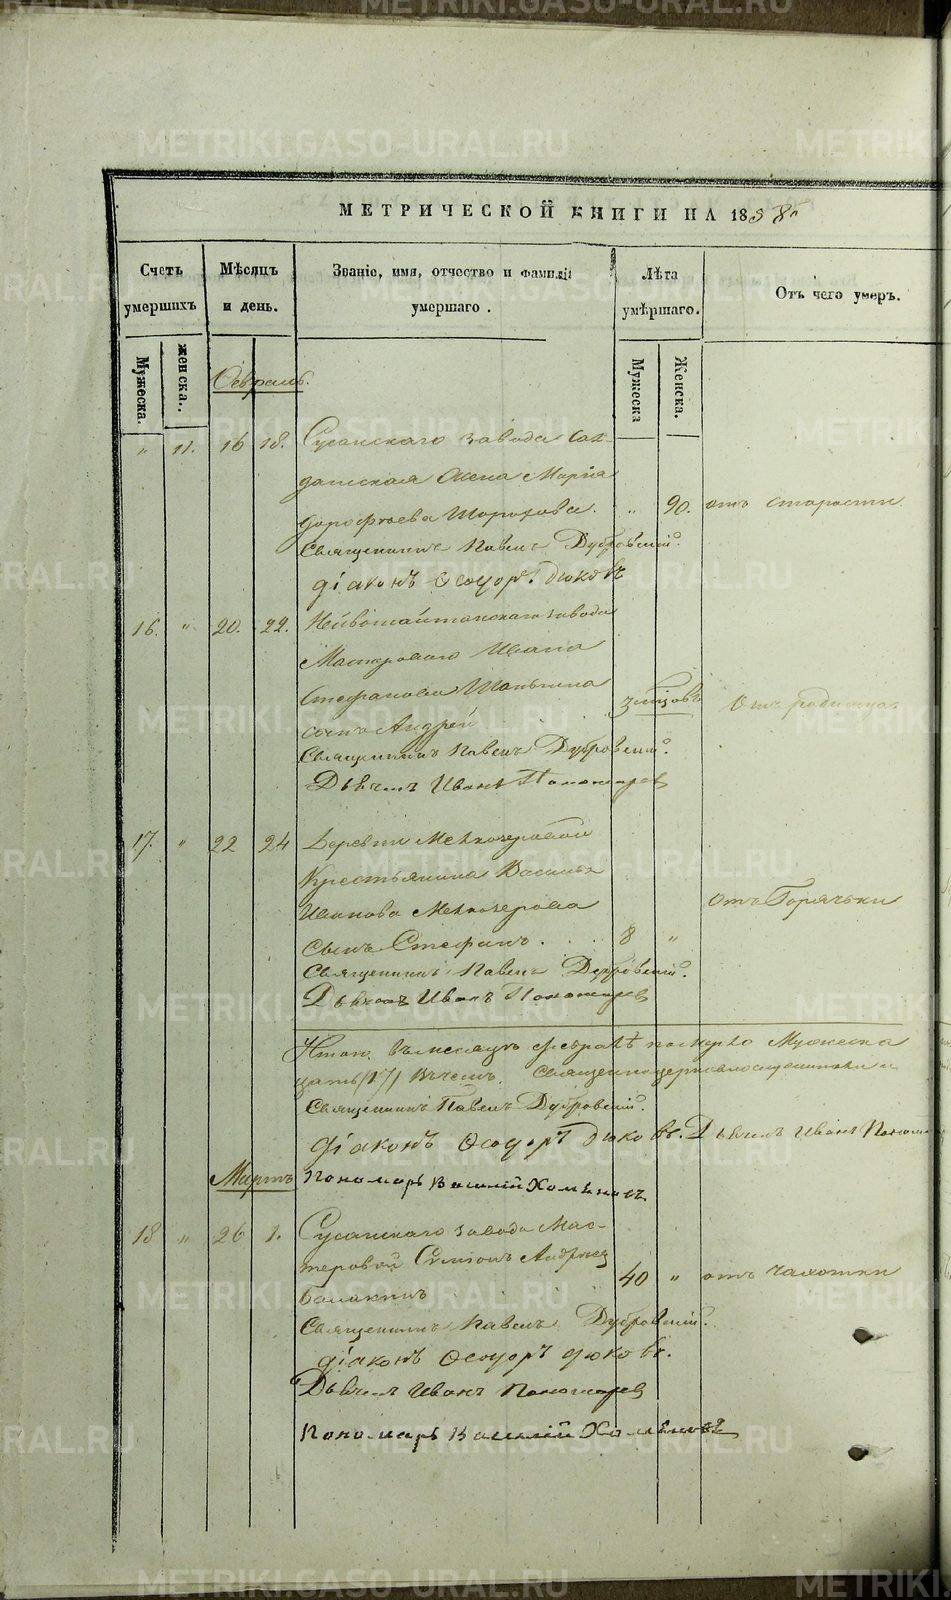 METRIKI.GASO-URAL.RU
МЕТРИЧЕСКОЙ КНИГИ НА 1838
Счетъ умершихъ
Мѣсяцъ и день.
Званіе, имя, отчество и фамилія умершаго.
Лѣта умѣршаго.
Отъ чего умеръ.
Мужеска.
женска.
Мужеска
Женска.
Февраль.
" 11. 16 18. Сусанскаго завода Сол-
датская Жена Марія
Дорофѣева Шорохова. " 90. отъ старости
Священникъ Павелъ Дубровскій.
діаконъ Ѳеодоръ Дюковъ
16. " 20. 22. Нейвошайтанскаго завода
Мастероваго Ивана
Стефанова
сынъ Андрей отъ родимца
Священникъ Павелъ Дубровскій.
Дьячекъ Иванъ Пономарев
17. " 22 24 Деревни Мелкозеровой
Крестьянина Василья
Иванова Мелкозерова отъ Горячки
сынъ Стефанъ. 8 "
Священникъ Павелъ Дубровскій.
Дьячекъ Иванъ Пономарев
Итого въ месяцѣ февралѣ померло Мужеска
/17/ въ чемъ Священноцерковнослужители и
Священникъ Павелъ Дубровскій.
діаконъ Ѳеодоръ Дюковъ. Дьячекъ Иванъ Поном
Мартъ
Пономарь Василій Хомяковъ.
18 " 26 1. Сусанскаго завода Мас-
теровой Симеонъ Андреев
Балакинъ 40 " отъ чахотки
Священникъ Павелъ Дубровскій.
діаконъ Ѳеодоръ Дюковъ.
Дьячекъ Иванъ Пономарев
Пономарь Василій Хомяковъ